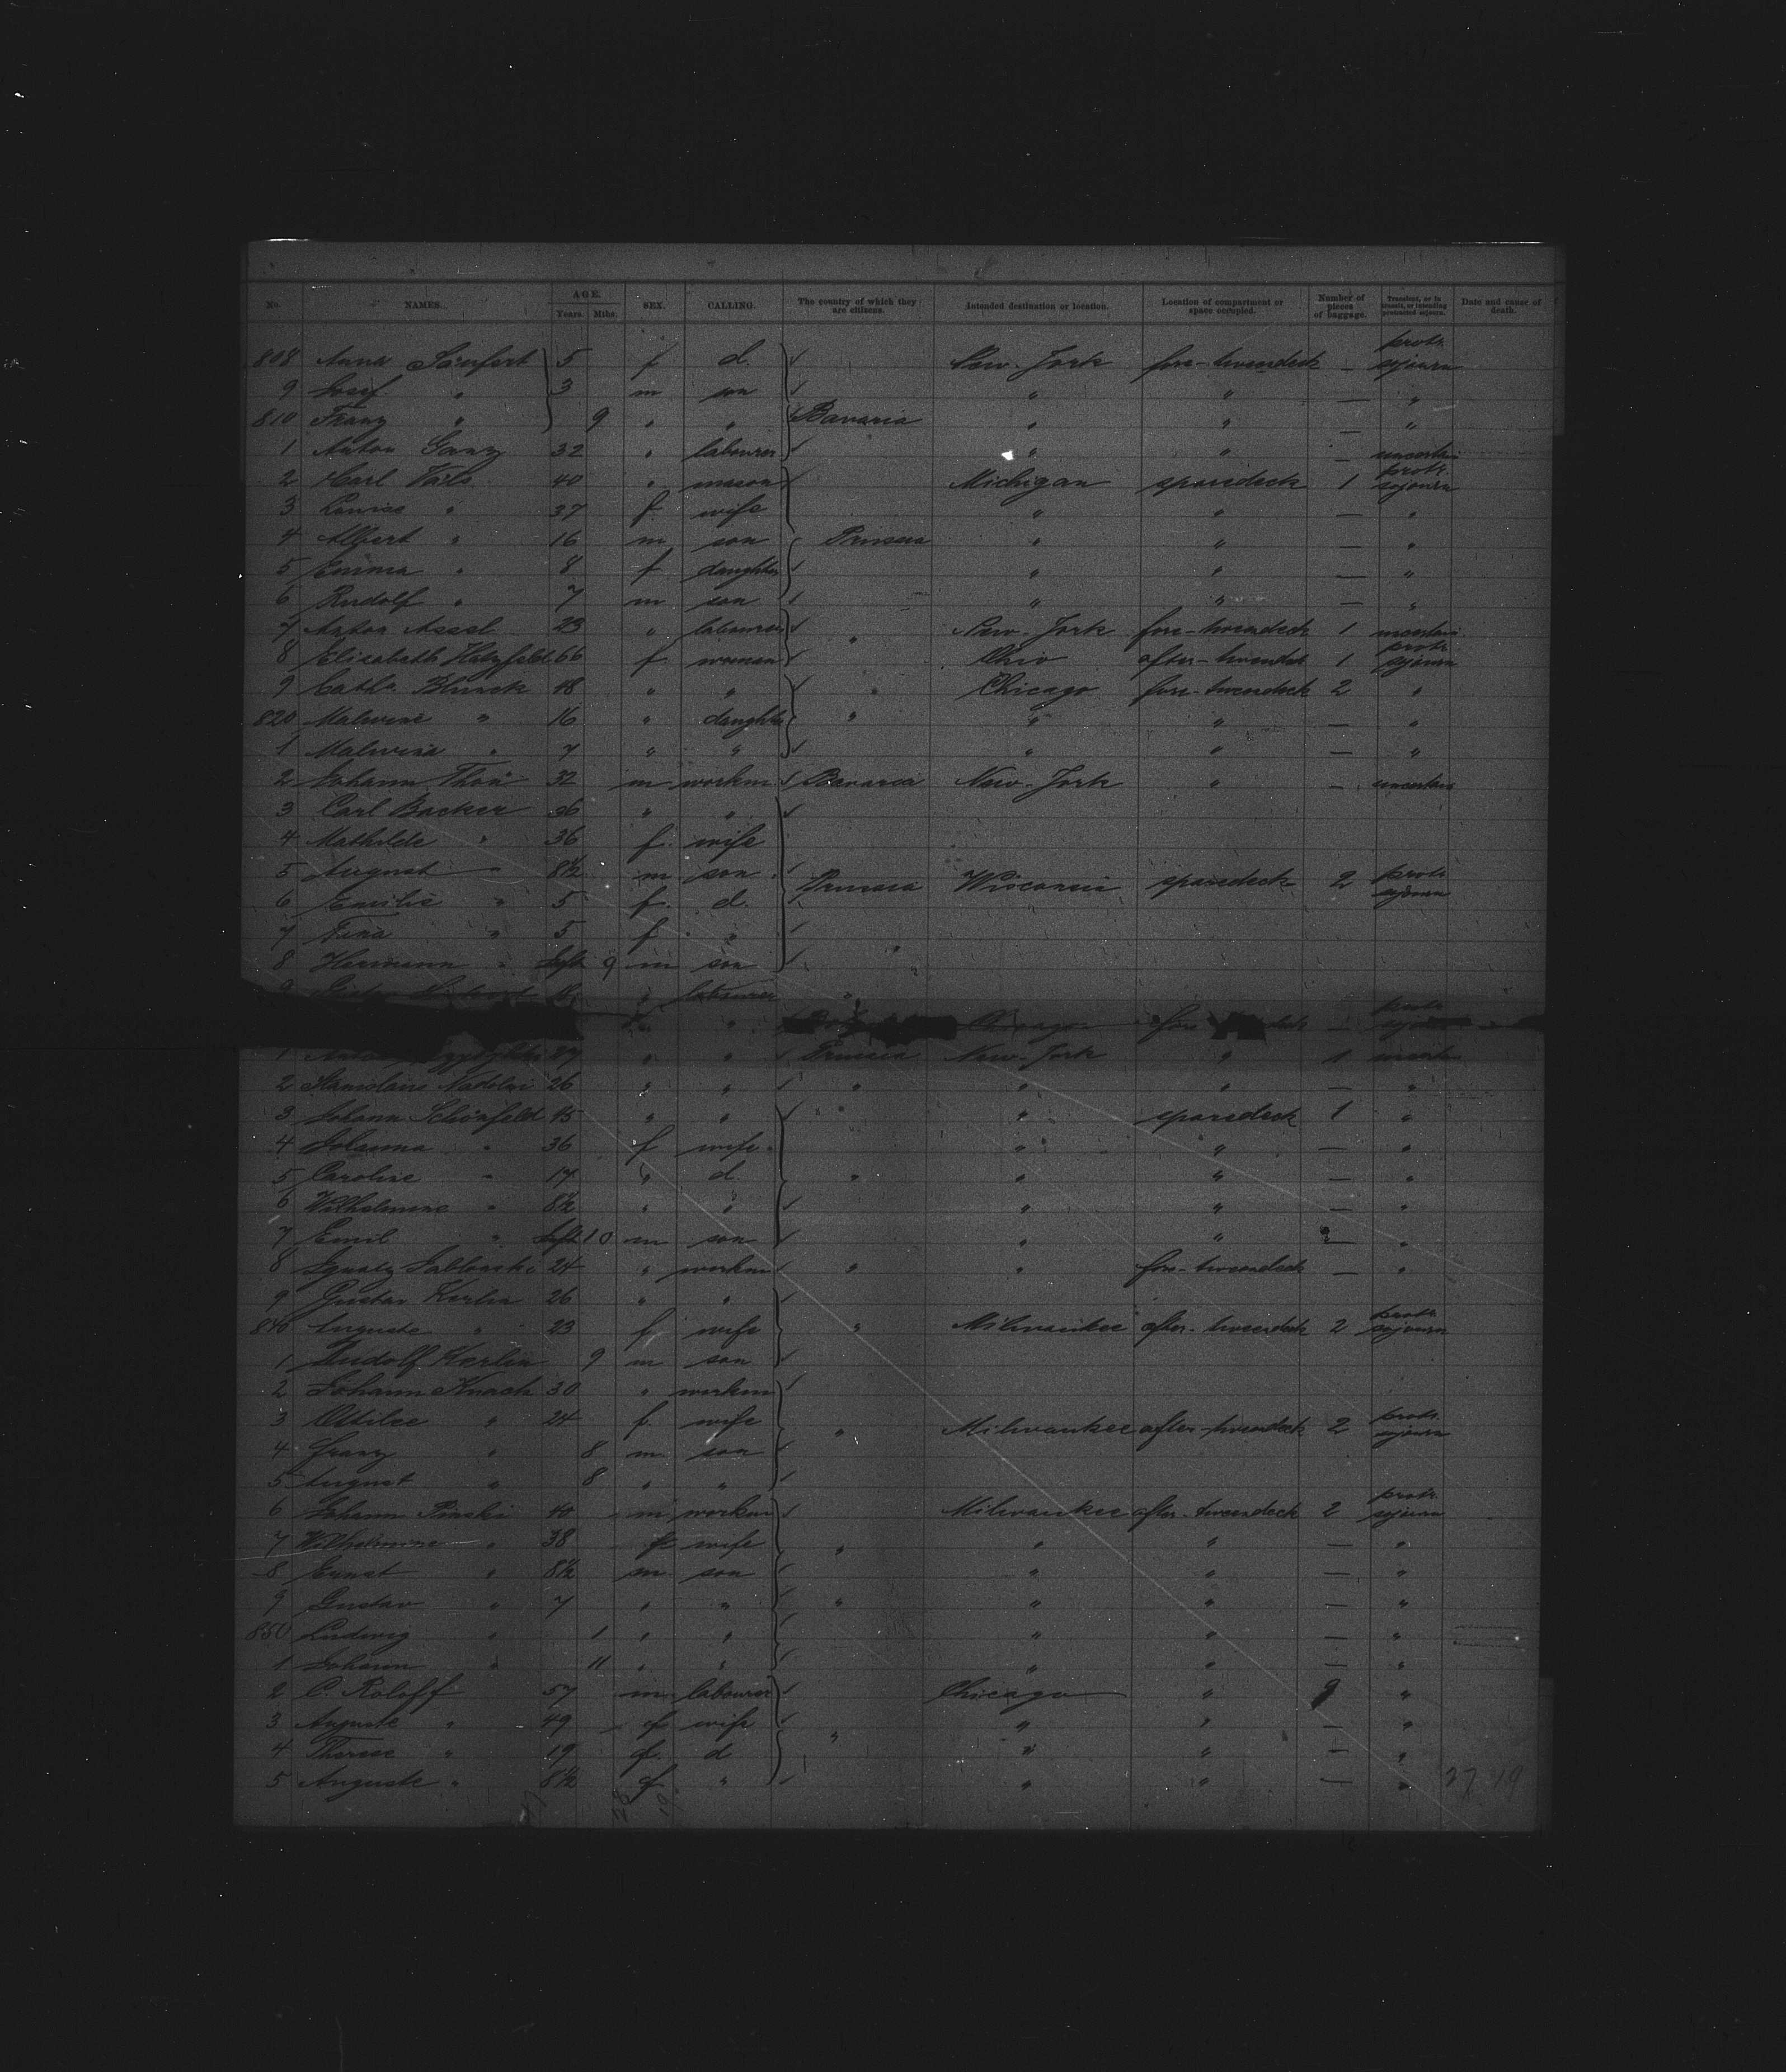 No. NAMES. AGE. Years. Mths. SEX. CALLING. The country of which they are citizens. Intended destination or location. Location of compartment or space occupied. Number of pieces of baggage. Transient, or in transit, or intending protracted sojourn. Date and cause of death.
808 Anna 5 f d. New-York fore-tweendeck — protr. sojourn
9 Josef " 3 m son " " — "
810 Franz " 9 " " Bavaria " " — "
1 Anton Ganz 32 " labourer " " — uncertain
2 Carl 40 " mason Michigan sparedeck 1 protr. sojourn
3 Louise " 37 f wife " " — "
4 Albert " 16 m son Prussia " " — "
5 Emma " 8 f daughter " " — "
6 Rudolf " 7 m son " " — "
7 Anton Assel 23 " labourer " New-York fore-tweendeck 1 uncertain
8 Elisabeth Hatzfeld 66 f woman Ohio after-tweendeck 1 protr. sojourn
9 Cathа. Blunck 48 " " " Chicago fore-tweendeck 2 "
820 Malwine " 16 " daughter " " " — "
1 Malwina " 7 " " " " — "
2 Johann 32 m workm. Bavaria New-York " — uncertain
3 Carl Backer 36 " "
4 Mathilde " 36 f. wife
5 August " 8½ m son Prussia Wisconsin sparedeck 2 protr. sojourn
6 Emilie " 5 f. d.
7 " 5 f "
8 Hermann " 9 m son
9 18 " labourer "
" Chicago fore —
1 " " Prussia New-York " 1
2 Nadolni 26 " " " " " — "
3 Johann Schönfeld 45 " " " " sparedeck 1 "
4 Johanna " 36 f wife " " — "
5 Caroline " 17 " d " " " — "
6 Wilhelmine " 8½ " " " " — "
7 Emil " 10 m son " " — "
8 Ignatz 24 " workm " " fore-tweendeck — "
9 Gustav Kerlin 26 " "
840 Auguste " 23 f wife " Milwaukee after-tweendeck 2 protr. sojourn
1 Rudolf Kerlin 9 m son
2 Johann Knach 30 " workm
3 Ottilie " 24 f. wife " Milwaukee after-tweendeck 2 protr. sojourn
4 Franz " 8 m. son
5 August " 8 " "
6 Johann Pinski 40 m workm Milwaukee after-tweendeck 2 protr. sojourn
7 Wilhelmine " 38 f wife " " " — "
8 Ernst " 8½ m. son " " — "
9 Gustav " 7 " " " " " — "
850 Ludwig " 1 " " " " — "
1 Johann " 11 " " " " — "
2 C. Roloff 57 m labourer Chicago " "
3 Auguste " 49 f wife " " — "
4 Therese " 19 f. d " " " — "
5 Auguste " 8½ f " " " — "